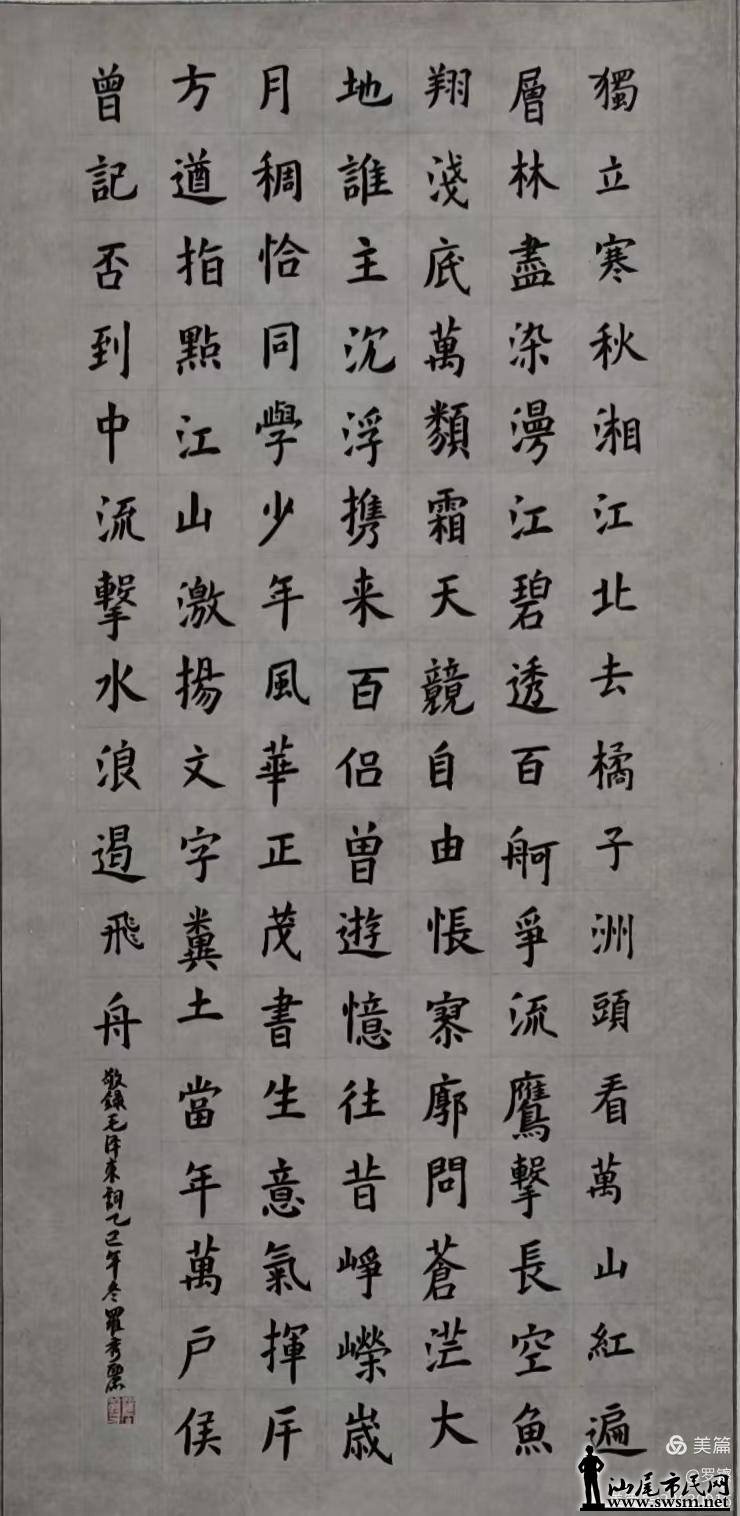 獨立寒秋湘江北去橘子洲頭看萬山紅遍
層林盡染漫江碧透百舸爭流鷹擊長空魚
翔淺底萬類霜天競自由悵寥廓問蒼茫大
地誰主沉浮携来百侣曾遊憶往昔崢嶸歲
月稠恰同學少年風華正茂書生意氣揮斥
方遒指點江山激揚文字糞土當年萬户侯
曾記否到中流擊水浪遏飛舟
敬錄毛泽东詞乙巳年冬羅秀
美篇
@罗
汕尾市民网
www.swsm.net